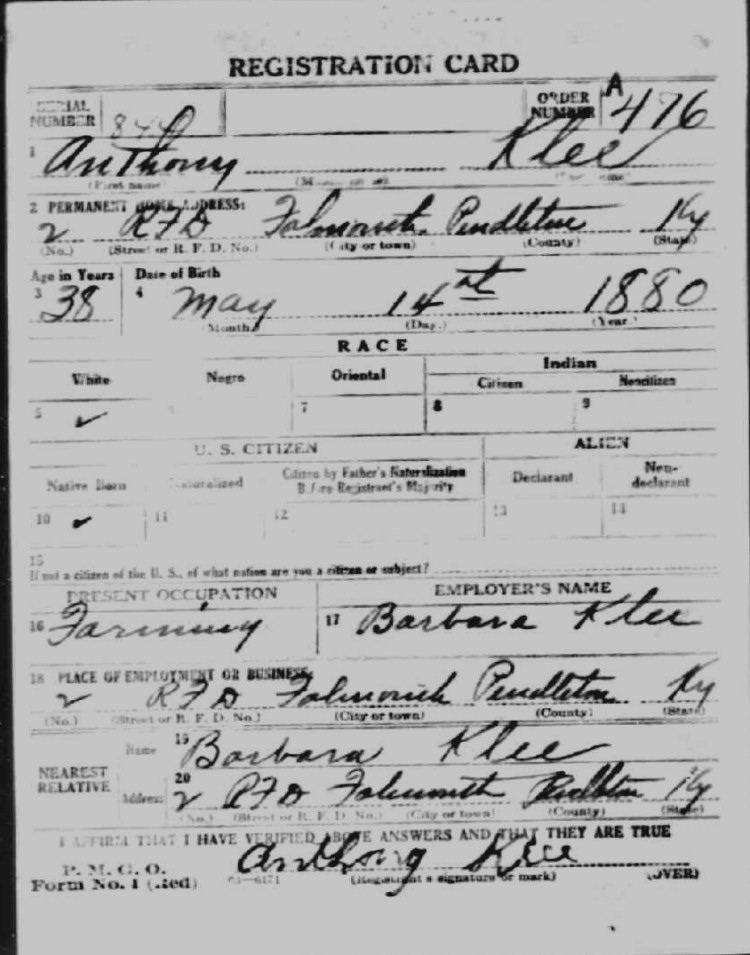 REGISTRATION CARD
SERIAL NUMBER ORDER NUMBER A 476
1 Anthony Klee
(First name)
2 PERMANENT HOME ADDRESS:
2 RFD Falmouth Pendleton Ky
(No.) (Street or R. F. D. No.) (City or town) (County) (State)
Age in Years Date of Birth
3 38 4 May 14 1880
(Month) (Day.) (Year.)
RACE
White Negro Oriental Indian
Citizen Noncitizen
5 ✓ 6 7 8 9
U. S. CITIZEN ALIEN
Native Born Naturalized Citizen by Father's Naturalization Before Registrant's Majority Declarant Non-declarant
10 ✓ 11 12 13 14
15
If not a citizen of the U. S., of what nation are you a citizen or subject?
PRESENT OCCUPATION EMPLOYER'S NAME
16 Farming 17 Barbara Klee
18 PLACE OF EMPLOYMENT OR BUSINESS:
2 RFD Falmouth Pendleton Ky
(No.) (Street or R. F. D. No.) (City or town) (County) (State)
NEAREST RELATIVE
Name 19 Barbara Klee
Address 20 2 RFD Falmouth Pendleton Ky
(No.) (Street or R. F. D. No.) (City or town) (County) (State)
I AFFIRM THAT I HAVE VERIFIED ABOVE ANSWERS AND THAT THEY ARE TRUE
Anthony Klee
P. M. G. O.
Form No. 1 (Red) (Registrant's signature or mark) (OVER)